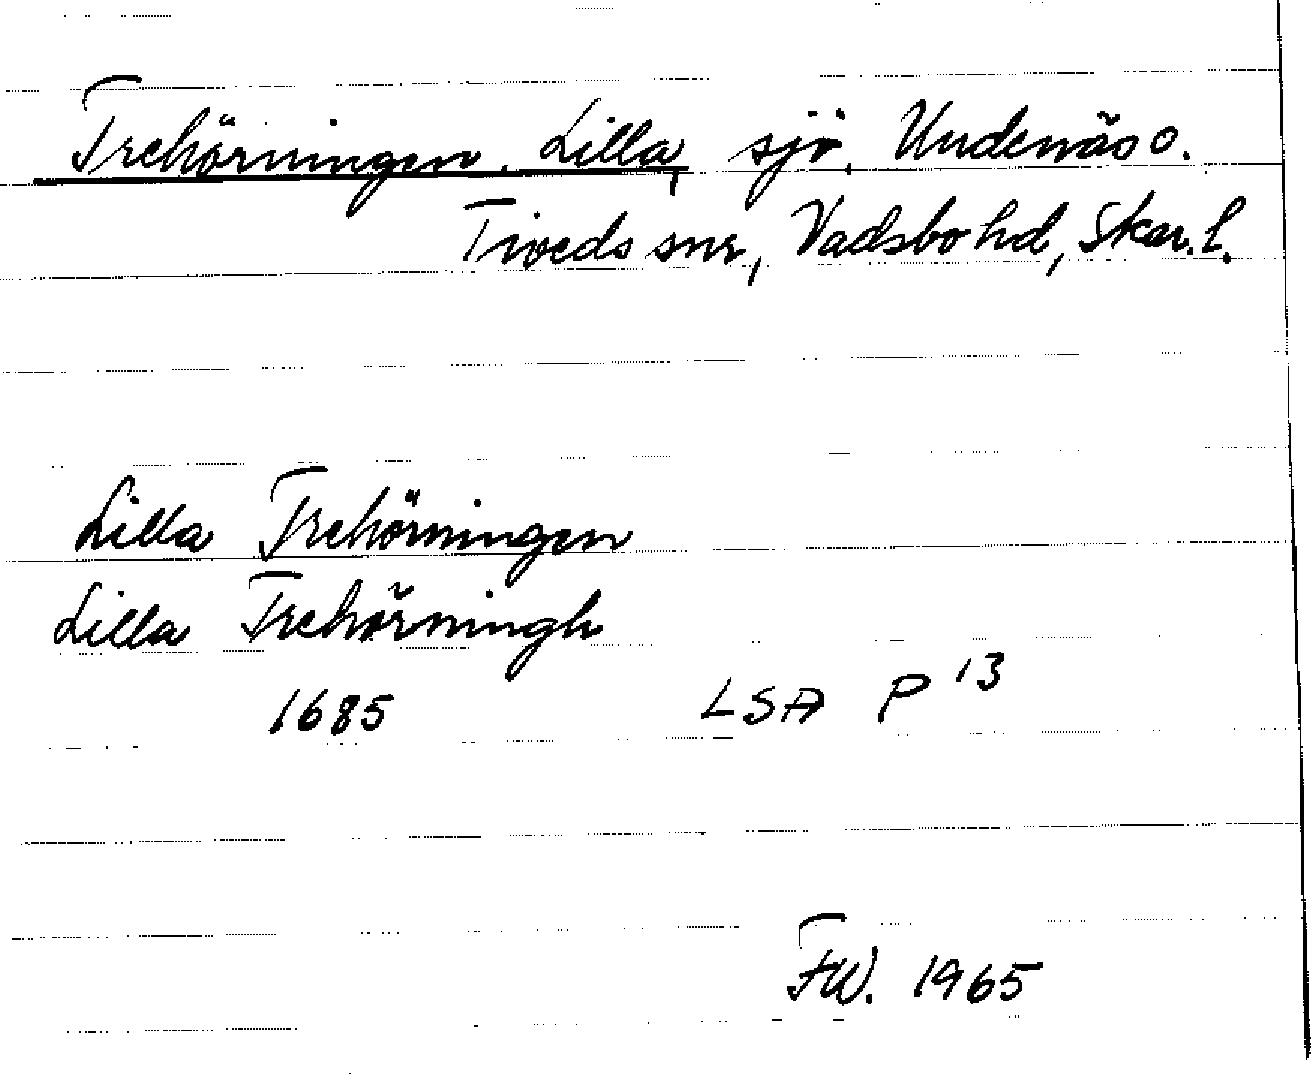 Trehörningen, Lilla, sjö, Undenäs o.
Tiveds snr, Vadsbo hd, Skar. l.
Lilla Trehörningen
Lilla Trehörningh
1685 LSA P 13
FW. 1965